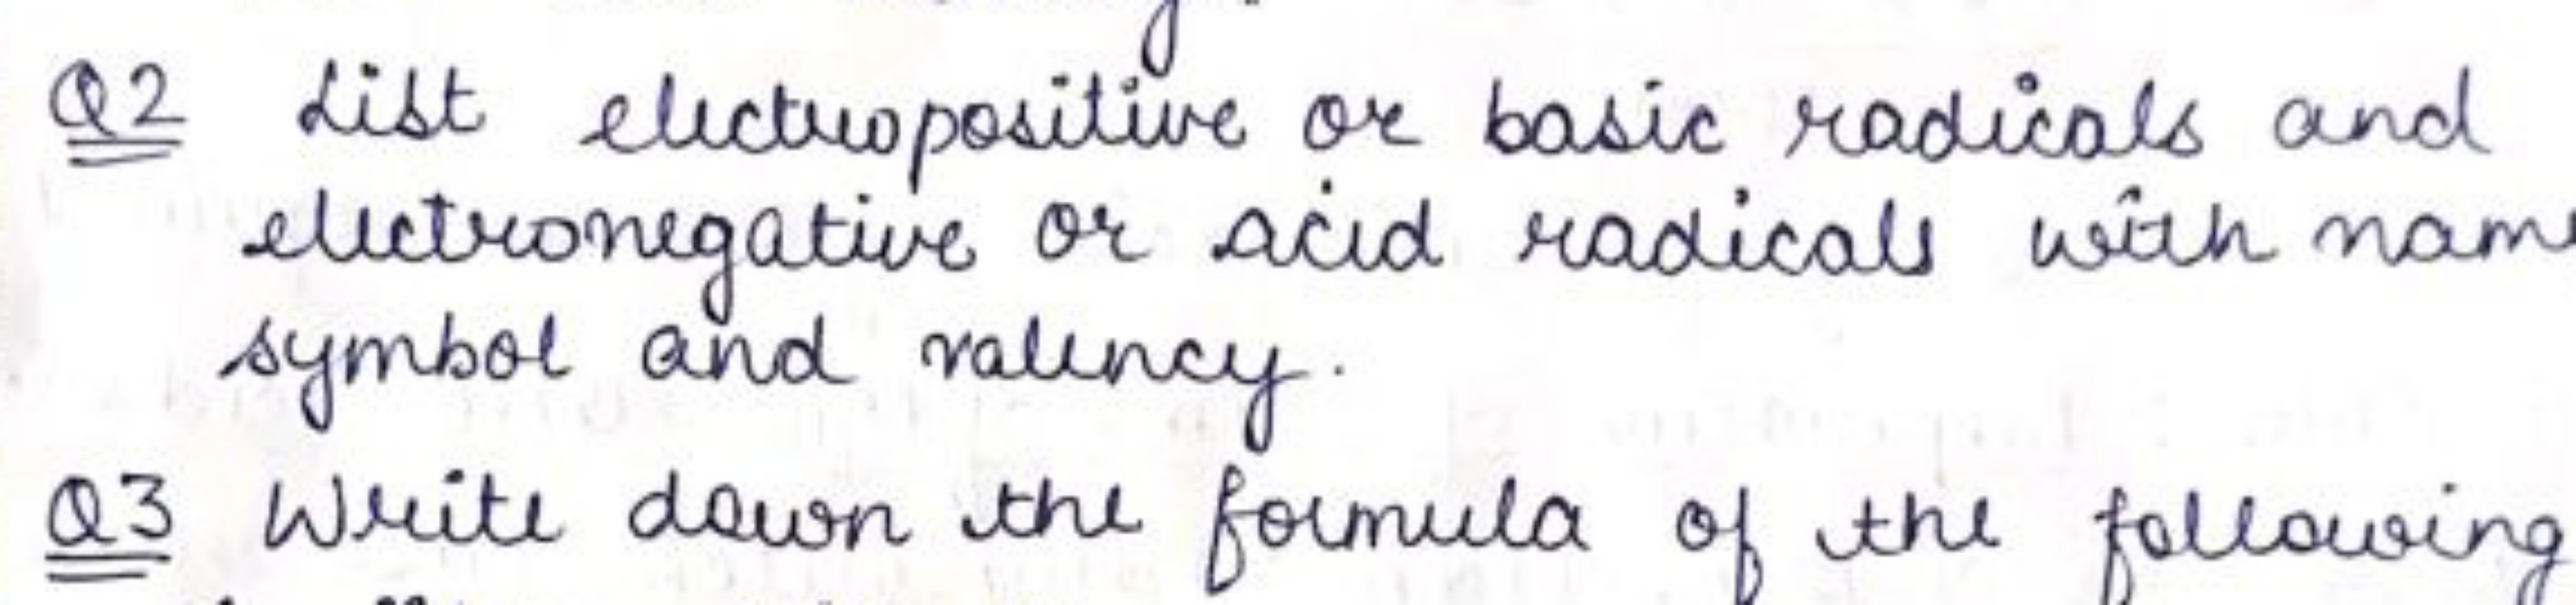 Q2 List electropositive or basic radicals and
electronegative or acid radicals with nam
symbol and valency.
Q3 Write down the formula of the following